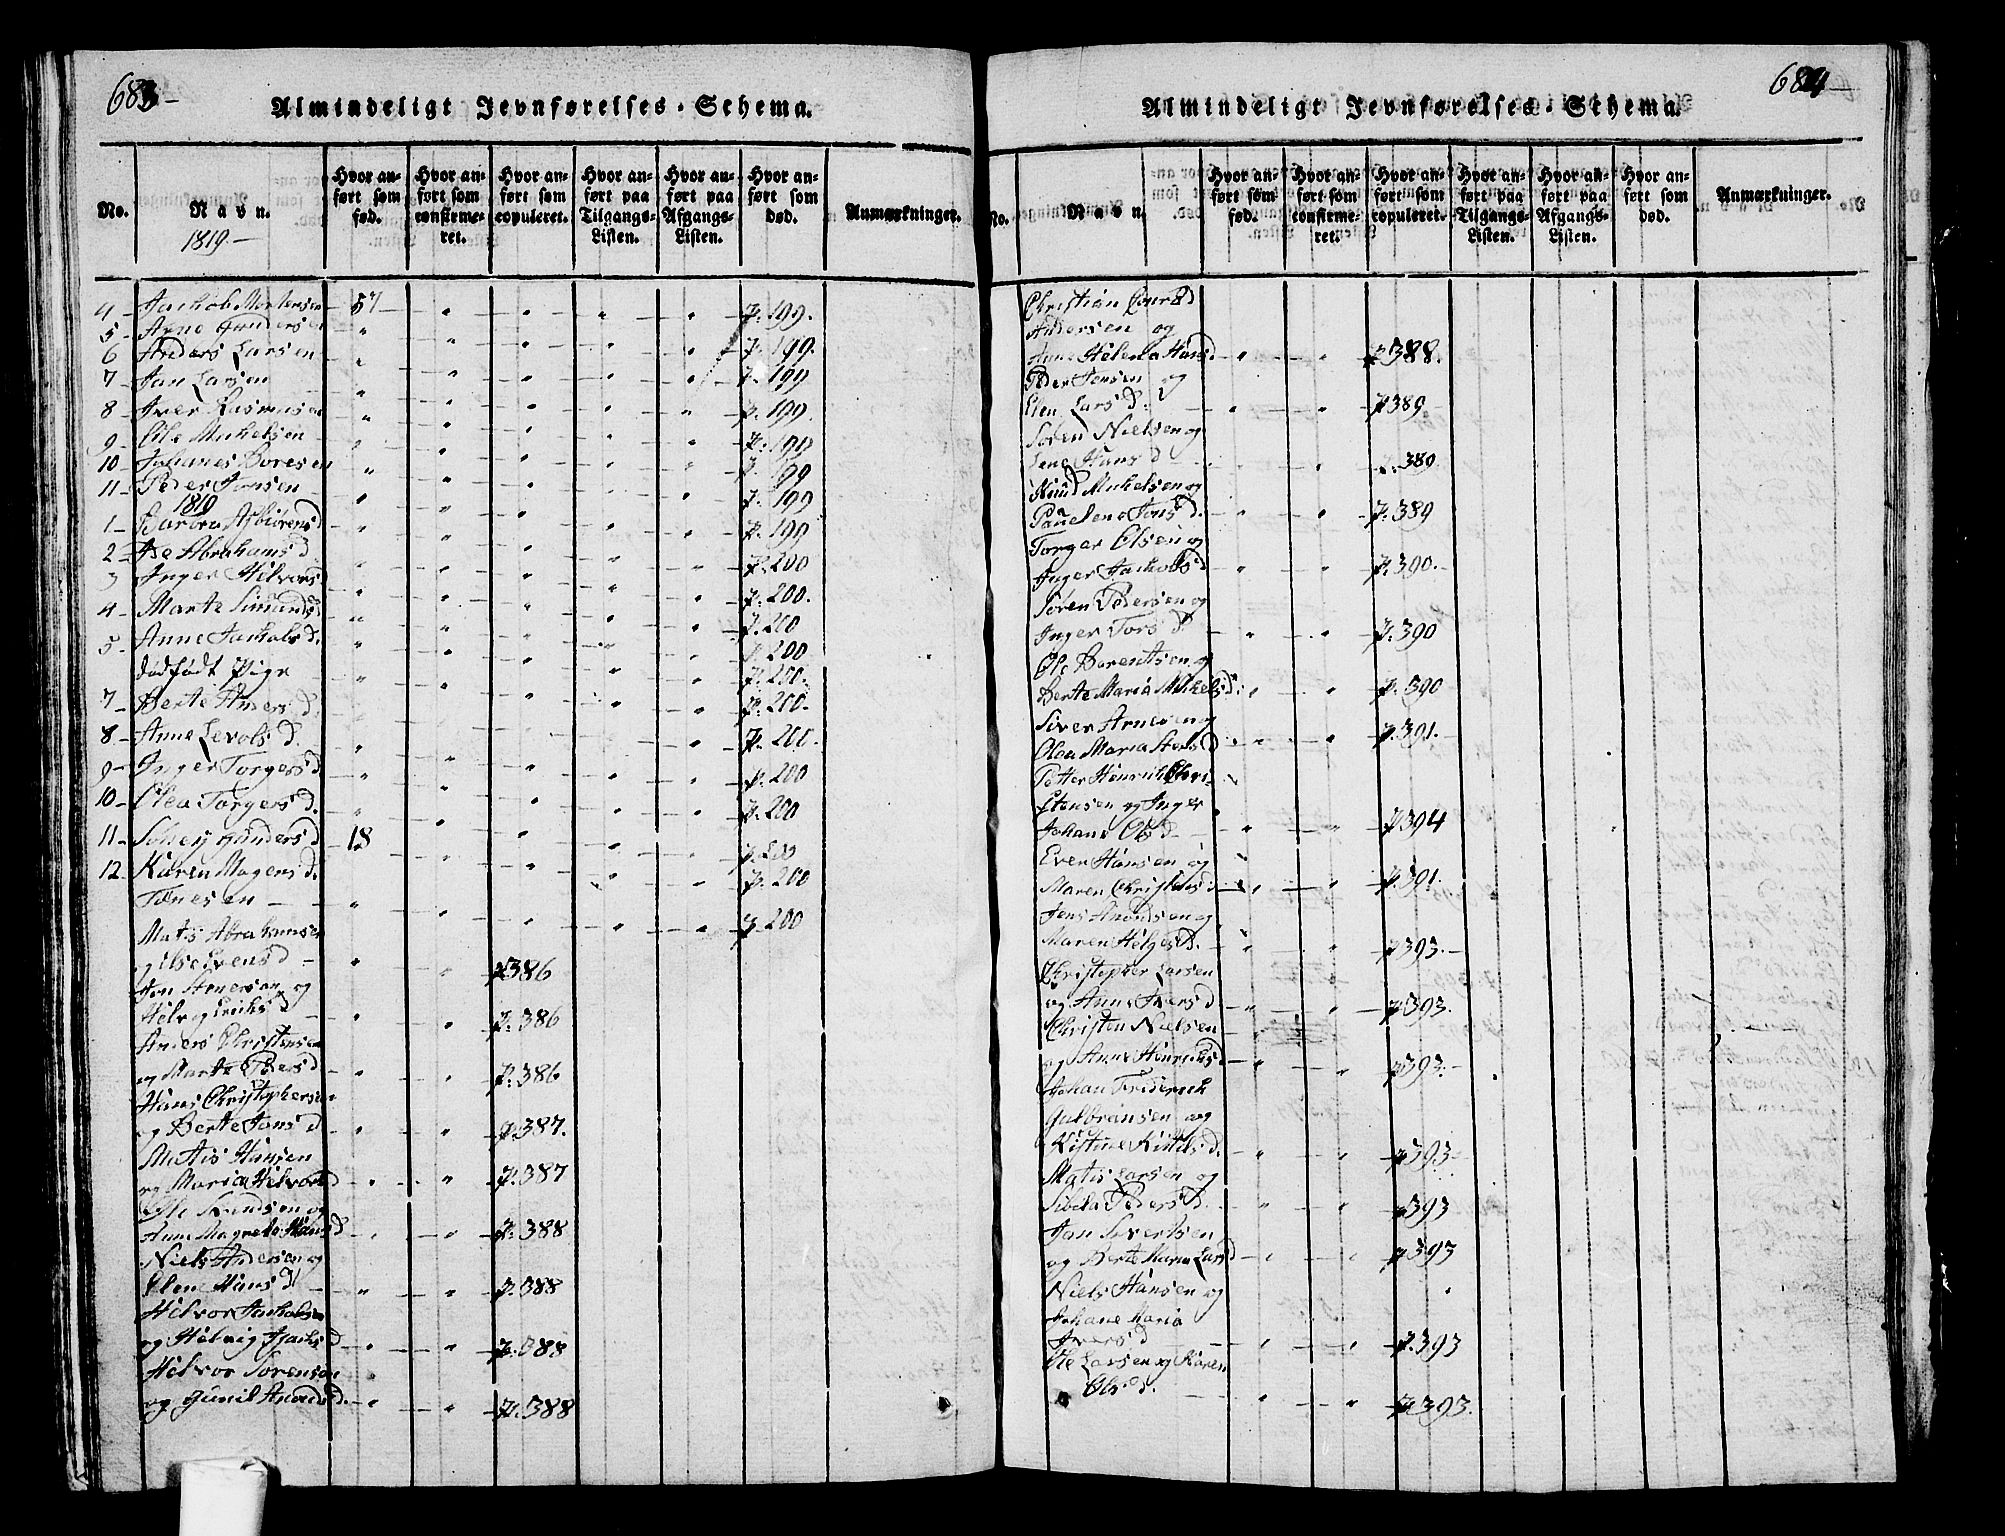 683-
Almindeligt Jevnførelses-Schema.
No.
Navn.
1819-
Hvor anført som fød.
Hvor anført som confirmeret.
Hvor anført som copuleret.
Hvor anført paa Tilgangs-Listen.
Hvor anført paa Afgangs-Listen.
Hvor anført som død.
Anmærkninger.
4 - Jachob Mortensen - 57 - p. 199.
5 - Arne Gundersen p. 199.
6 Anders Larsen p. 199
7 - Jan Larsen p. 199.
8 Iver Rasmusen p. 199
9 - Ole Michelsen p. 199
10 - Johanes Boresen p. 199
11 - Peder Jonsen p. 199
1819
1 - Barbra Asbiørensd p. 200
2 - Abrahamsd p. 200.
3 Inger Helvorsd p. 200
4 - Marte Simunsd p. 200
5 - Anne Jachobsd. p. 200.
dødfødt Pige p. 200.
7 - Berte Andersd. p. 200.
8 - Anne Levolsd. p. 200
9 - Inger Torgersd. p. 200
10 - Olea Torgersd. p. 200
11 - Gundersd 18 p. 200
12 Karen Magensd.
Tønesen - p. 200
Matis Abrahamsen
og Else Evensd - p 386
Jon Arnersen og
Helvig Eriksd - p. 386
Anders Christensen
og Marte Pedersd p. 386
Hans Christophersen
og Berte Jonsd p. 387.
Matis Hansen
og Maria Helvorsd p. 387
Ole Knudsen og
Anne Magrete Hansd p. 388
Niels Andersen og
Elen Hansd - p. 388
Helvor Jachobsen
og Helvig p. 388
Helvor Sørensen
og Gunil p. 388
684-
Almindeligt Jevnførelses-Schema.
No.
Navn.
Hvor anført som fød.
Hvor anført som confirmeret.
Hvor anført som copuleret.
Hvor anført paa Tilgangs-Listen.
Hvor anført paa Afgangs-Listen.
Hvor anført som død.
Anmærkninger.
Christian
Andersen og
Anne Helena Hansd p 388.
Peder Jensen og
Elen Larsd. p 389
Søren Nielsen og
Lene Hansd p. 380
Knud Michelsen og
p. 389
Torger Olsen og
Inger Jachobsd p. 390.-
Søren Pedersen og
Inger Torsd p. 390
Ole Barentsen og
Berte Maria Michelsd. p. 390
Siver Arnesen og
Olea Maria p. 391.-
Petter Henrich Chri-
stensen og Inger
Johane Olsd - p 394
Even Hansen og
Maren Christensd p. 391.
Jens og
Maren Helgesd. p 393.-
Christopher Larsen
og Anne Iversd p 393.
Christen Nielsen
og Anne Henrichsd p 393.-
Johan Friderich
Gulbransen og
Kistine Kittelsd. p 393-
Matis Larsen og
Sibela Pedersd. p 393
Jan Sivertsen
og Berte Maria Larsd p 393
Niels Hansen og
Johane Maria
Iversd p. 393
Ole Larsen og Karen
Olsd. p 393.